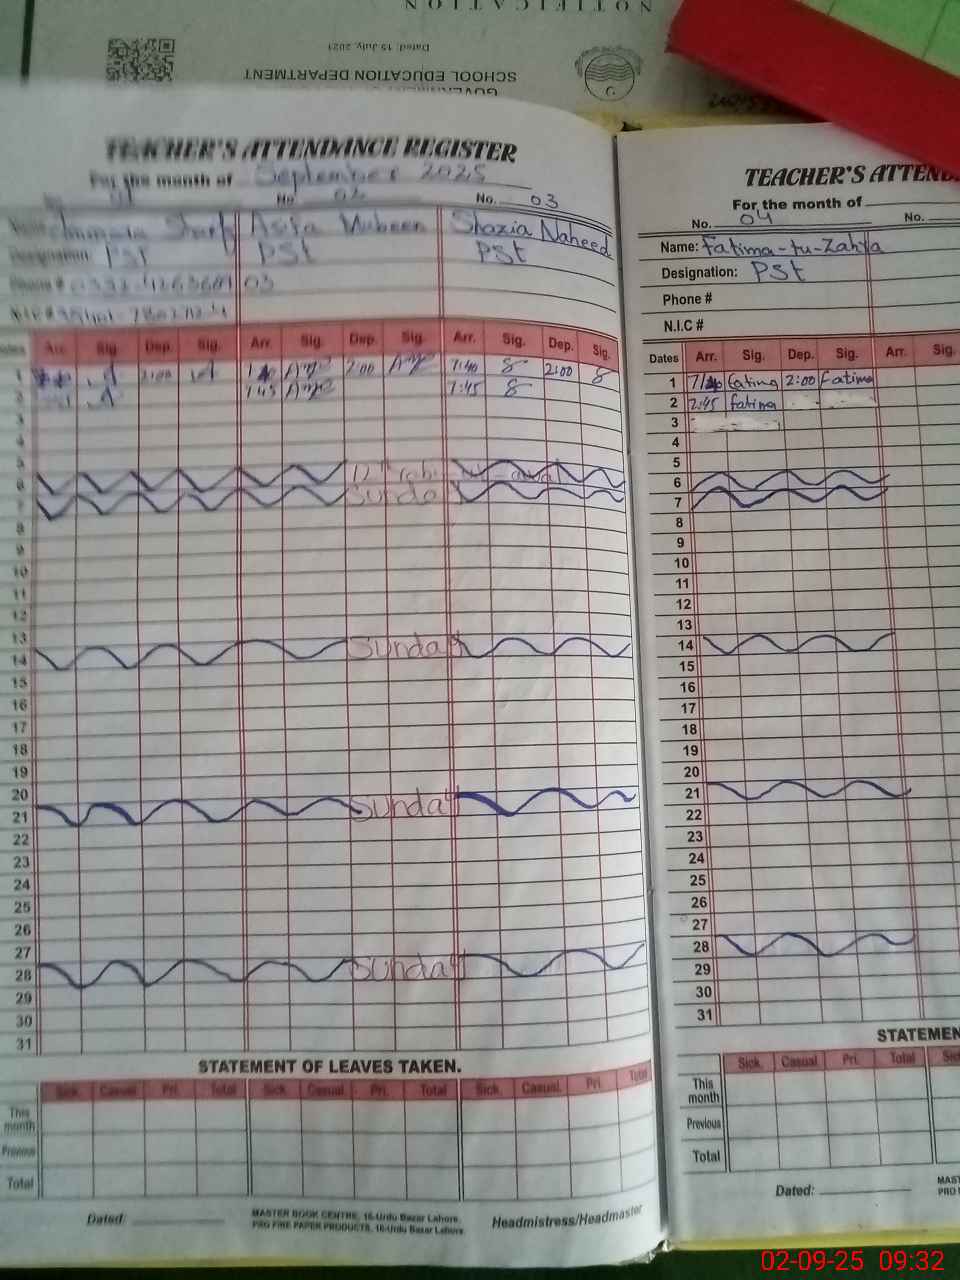 NOTIFICATION
Dated: 15 July, 2021
SCHOOL EDUCATION DEPARTMENT
TEACHER'S ATTENDANCE REGISTER
For the month of September 2025
No. 01 No. 02 No. 03
Asifa Mubeen Shazia Naheed
Designation: PST PST PST
Phone #
Dates Arr. Sig. Dep. Sig. Arr. Sig. Dep. Sig. Arr. Sig. Dep. Sig.
1 2:00 2:00 7:40 2:00
2 7:45 7:45
3
4
5
6 12th rabi ul awal
7 Sunday
8
9
10
11
12
13
14 Sunday
15
16
17
18
19
20
21 Sunday
22
23
24
25
26
27
28 Sunday
29
30
31
STATEMENT OF LEAVES TAKEN.
Sick. Casual. Pri. Total Sick. Casual. Pri. Total Sick. Casual. Pri. Total
This month
Previous
Total
Dated:
MASTER BOOK CENTRE, 16-Urdu Bazar Lahore.
PRO FINE PAPER PRODUCTS, 16-Urdu Bazar Lahore.
Headmistress/Headmaster
TEACHER'S ATTEN
For the month of
No. 04 No.
Name: Fatima-tu-Zahra
Designation: PST
Phone #
N.I.C #
Dates Arr. Sig. Dep. Sig. Arr. Sig.
1 Fatima 2:00 Fatima
2 7:45 fatima
3
4
5
6
7
8
9
10
11
12
13
14
15
16
17
18
19
20
21
22
23
24
25
26
27
28
29
30
31
STATEMEN
Sick. Casual Pri. Total
This month
Previous
Total
Dated:
02-09-25 09:32